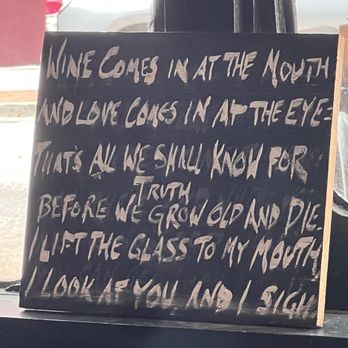 WINE COMES IN AT THE MOUTH
AND LOVE COMES IN AT THE EYE-
THAT'S ALL WE SHALL KNOW FOR
TRUTH
BEFORE WE GROW OLD AND DIE.
I LIFT THE GLASS TO MY MOUTH
I LOOK AT YOU AND I SIGH